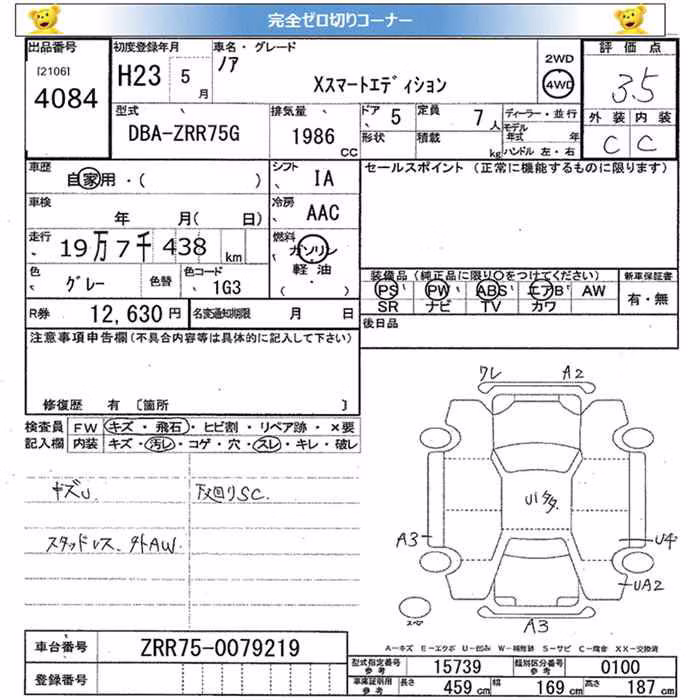 完全ゼロ切りコーナー
出品番号 初度登録年月 車名・グレード 評価点
[2106] 4084 H23 5月 ノア Xスマートエディション 2WD 4WD 3.5
型式 排気量 ドア 定員 ディーラー・並行 外装 内装
DBA-ZRR75G 1986 CC 5 7人 モデル年式 年 C C
形状 積載 kg ハンドル 左・右
車歴 自家用・( ) シフト IA セールスポイント (正常に機能するものに限ります)
車検 年 月( 日) 冷房 AAC
走行 19万7千438 km 燃料 ガソリン
色 グレー 色替 色コード 1G3 軽油 ( ) 装備品(純正品に限り○をつけてください) 新車保証書
PS PW ABS エアB AW 有・無
R券 12,630円 名変通知期限 月 日 SR ナビ TV カワ
注意事項申告欄(不具合内容等は具体的に記入して下さい) 後日品
修復歴 有 〔箇所 〕
検査員 FW キズ・飛石・ヒビ割・リペア跡・×要
記入欄 内装 キズ・汚レ・コゲ・穴・スレ・キレ・破レ
ワレ A2
キズU 下回りSC.
U1タタ
スタッドレス. 外AW.
A3 U4
UA2
スペア A3
A-キズ E-エクボ U-凹み W-補修跡 S-サビ C-腐食 XX-交換済
車台番号 ZRR75-0079219
型式指定番号 参考 15739 類別区分番号 参考 0100
登録番号 車庫証明用 参考 長さ 459cm 幅 169cm 高さ 187cm